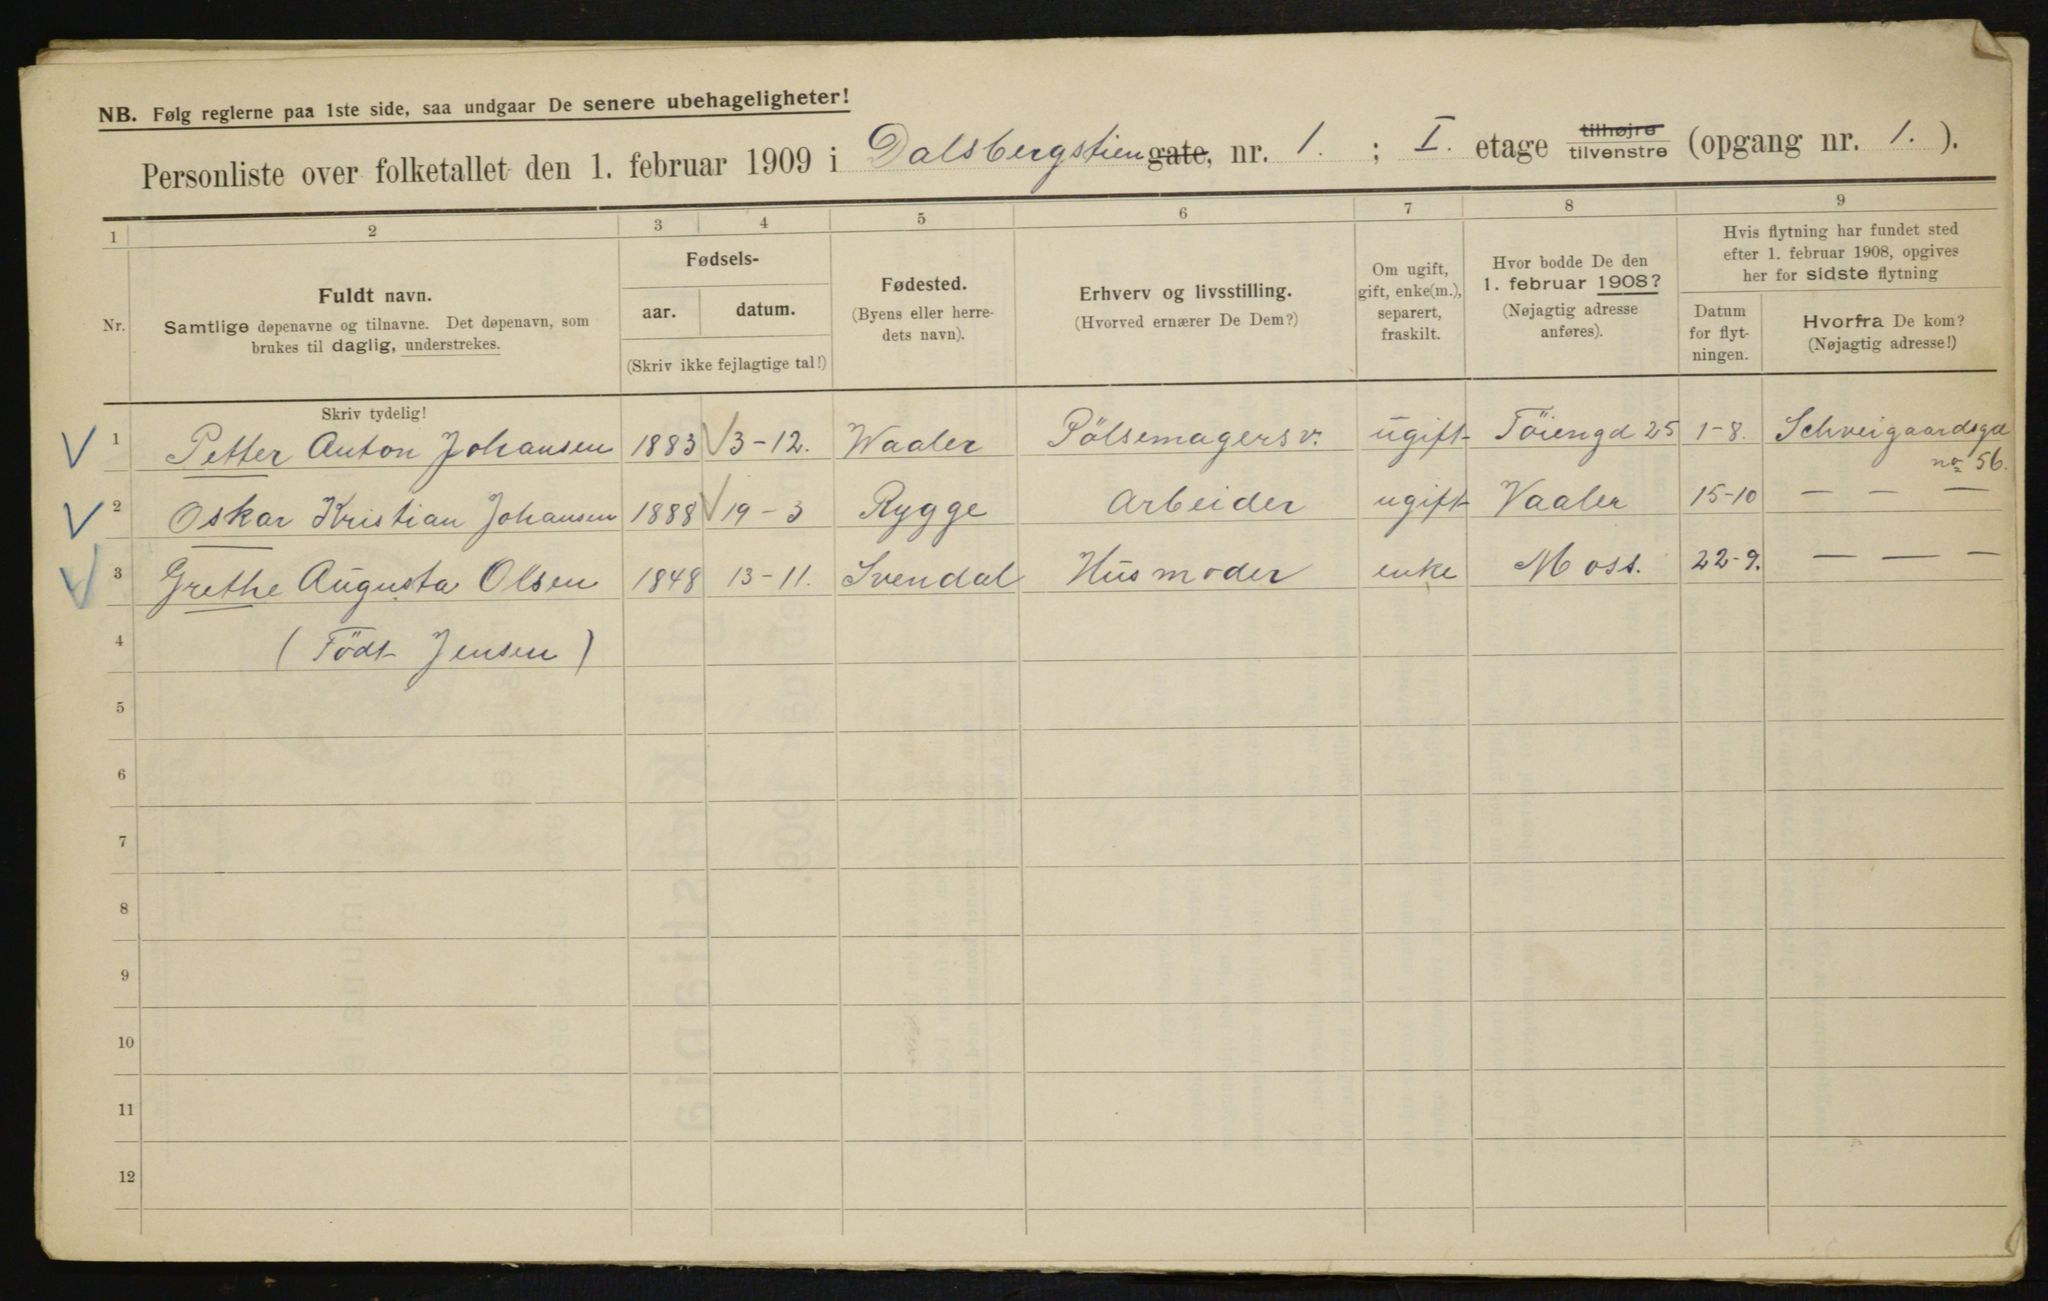 NB. Følg reglerne paa 1ste side, saa undgaar De senere ubehageligheter!
Personliste over folketallet den 1. februar 1909 i Dalsbergstien gate, nr. 1. ; I. etage tilhøjre tilvenstre (opgang nr. 1. ).
1 2 3 4 5 6 7 8 9
Nr.
Fuldt navn.
Samtlige døpenavne og tilnavne. Det døpenavn, som
brukes til daglig, understrekes.
Fødsels-
aar. datum.
(Skriv ikke fejlagtige tal!)
Fødested.
(Byens eller herre-
dets navn).
Erhverv og livsstilling.
(Hvorved ernærer De Dem?)
Om ugift,
gift, enke(m.),
separert,
fraskilt.
Hvor bodde De den
1. februar 1908?
(Nøjagtig adresse
anføres).
Hvis flytning har fundet sted
efter 1. februar 1908, opgives
her for sidste flytning
Datum
for flyt-
ningen.
Hvorfra De kom?
(Nøjagtig adresse!)
Skriv tydelig!
1 Petter Anton Johansen 1883 3-12. Waaler Pölsemagersv. ugift Töiengd 25 1-8. Schveigaardsgd
no 56.
2 Oskar Kristian Johansen 1888 19-3 Rygge Arbeider ugift Vaaler 15-10 — — —
3 Grethe Augusta Olsen 1848 13-11. Svendal Husmoder enke Moss. 22-9. — — —
4 (Födt Jensen)
5
6
7
8
9
10
11
12